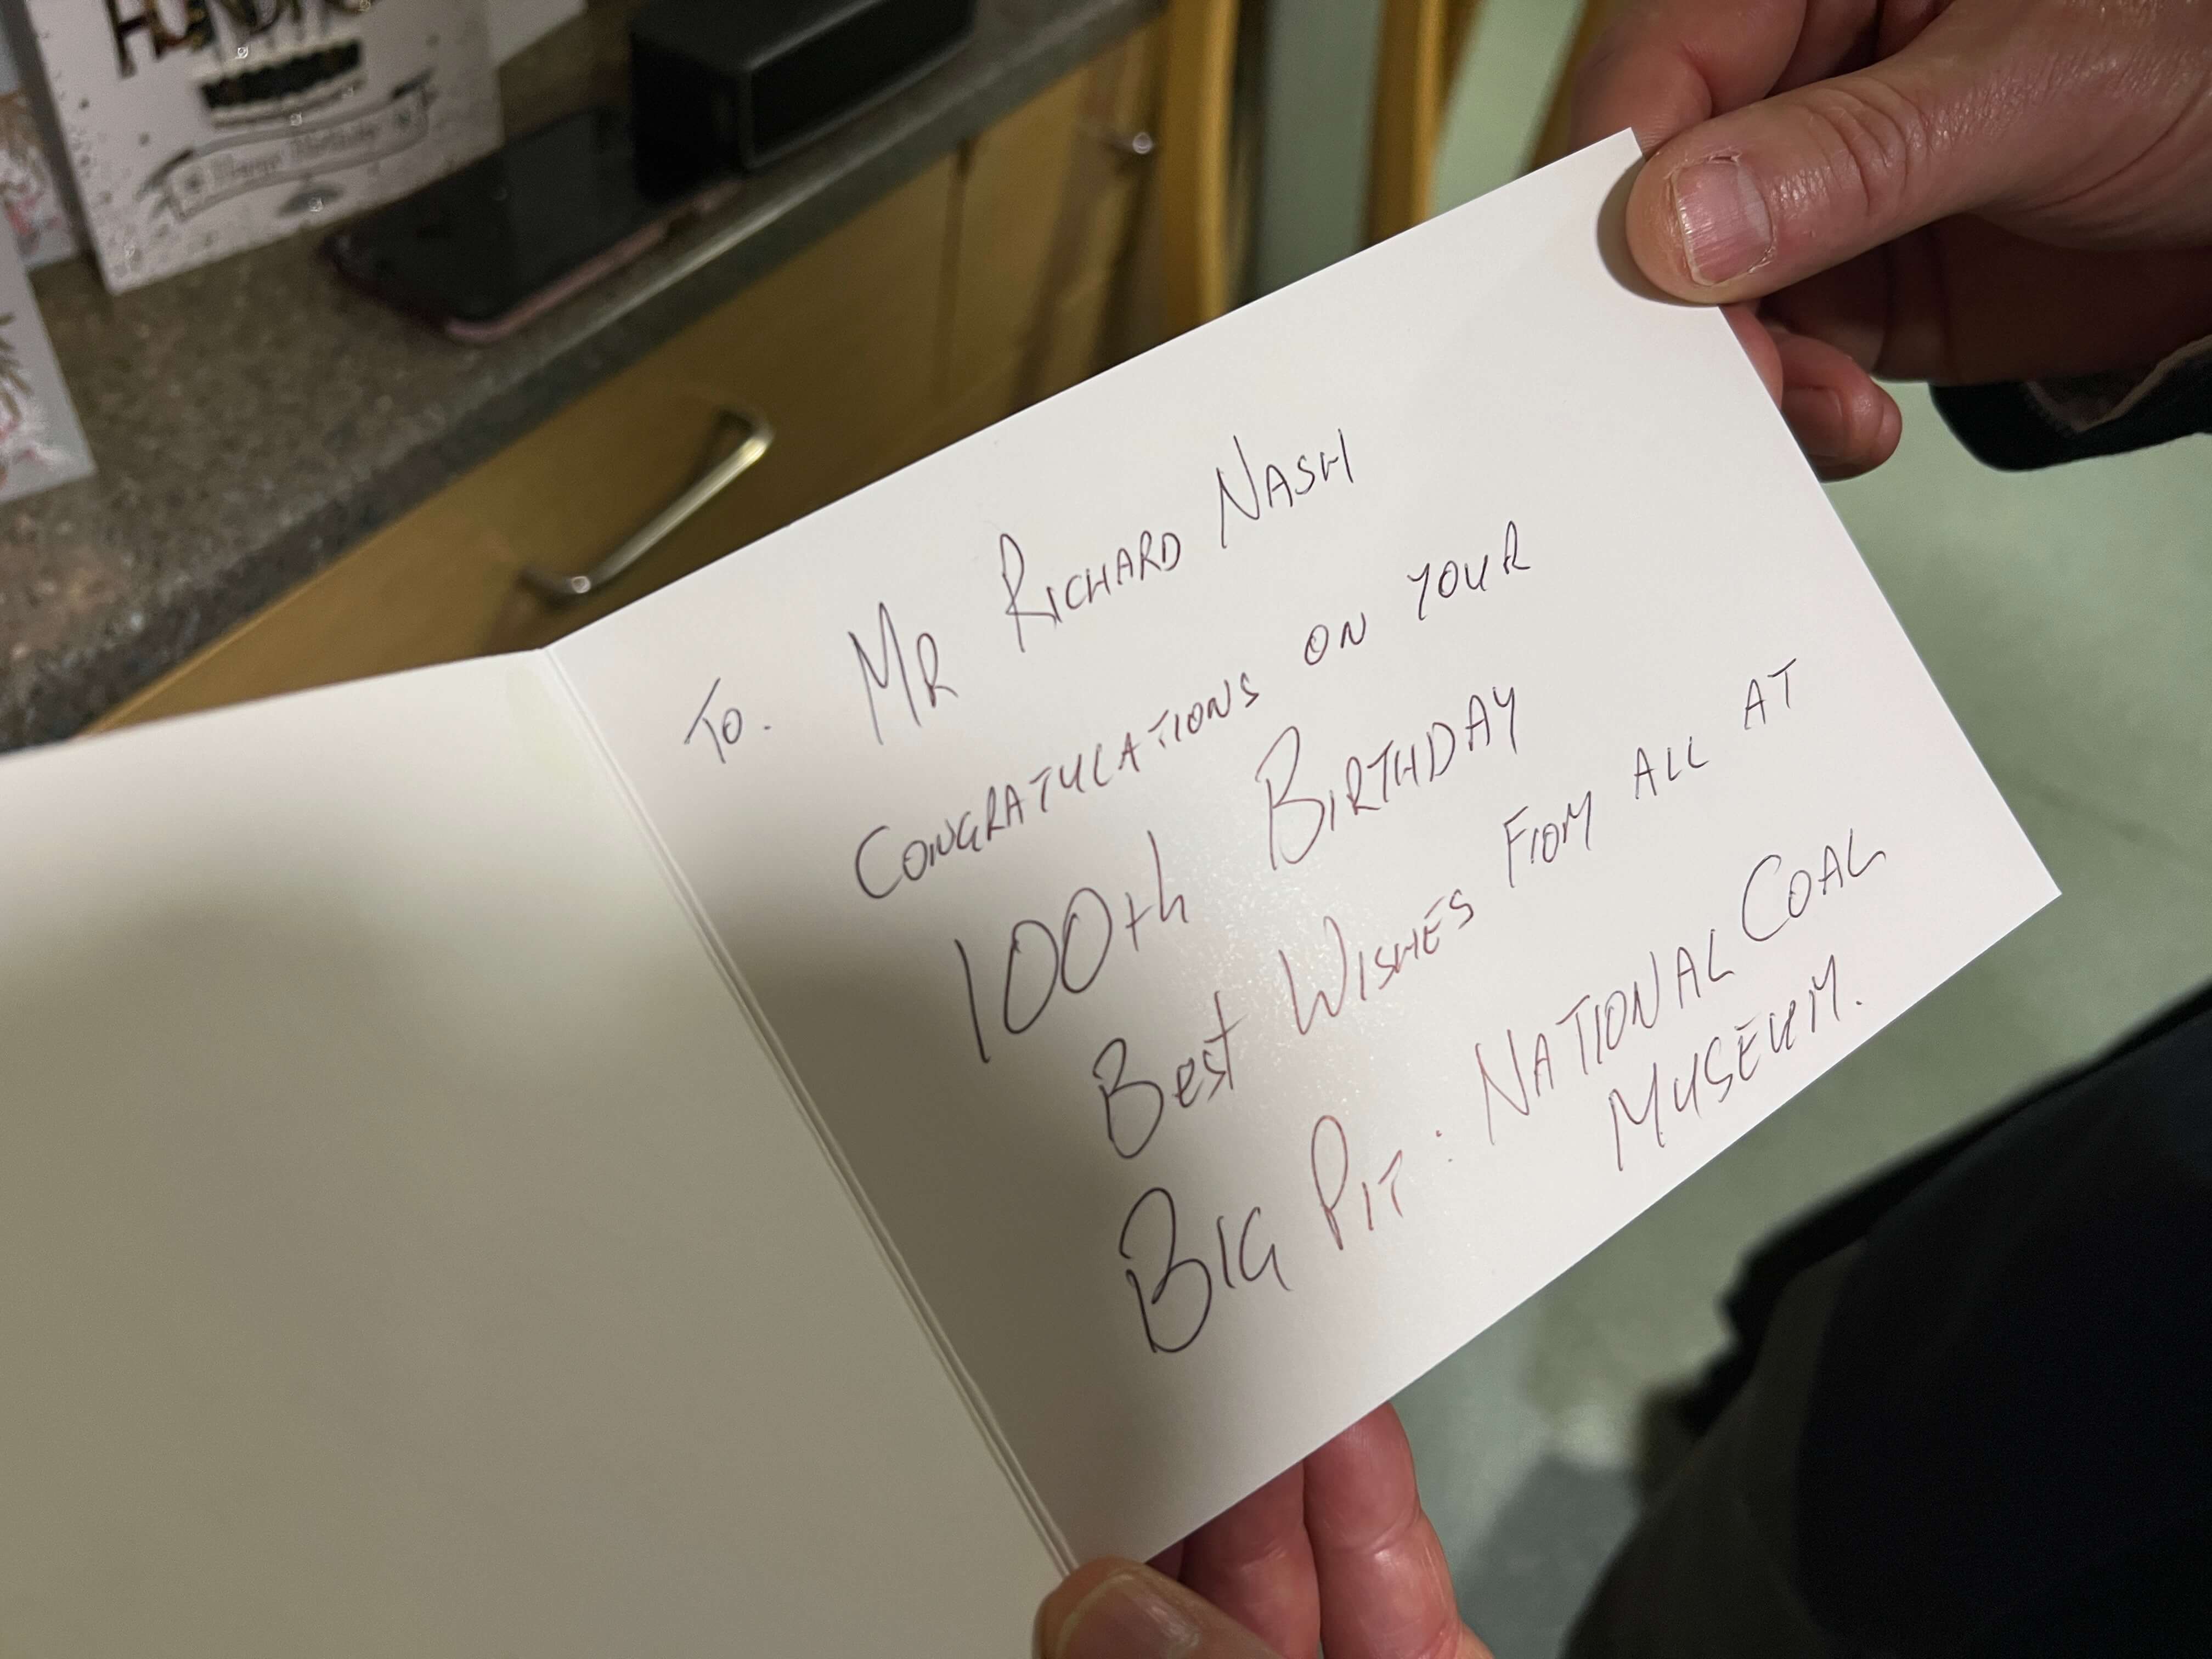 HUNDR
Happy Birthday
TO. MR RICHARD NASH
CONGRATULATIONS ON YOUR
100th BIRTHDAY
BEST WISHES FROM ALL AT
BIG PIT: NATIONAL COAL
MUSEUM.